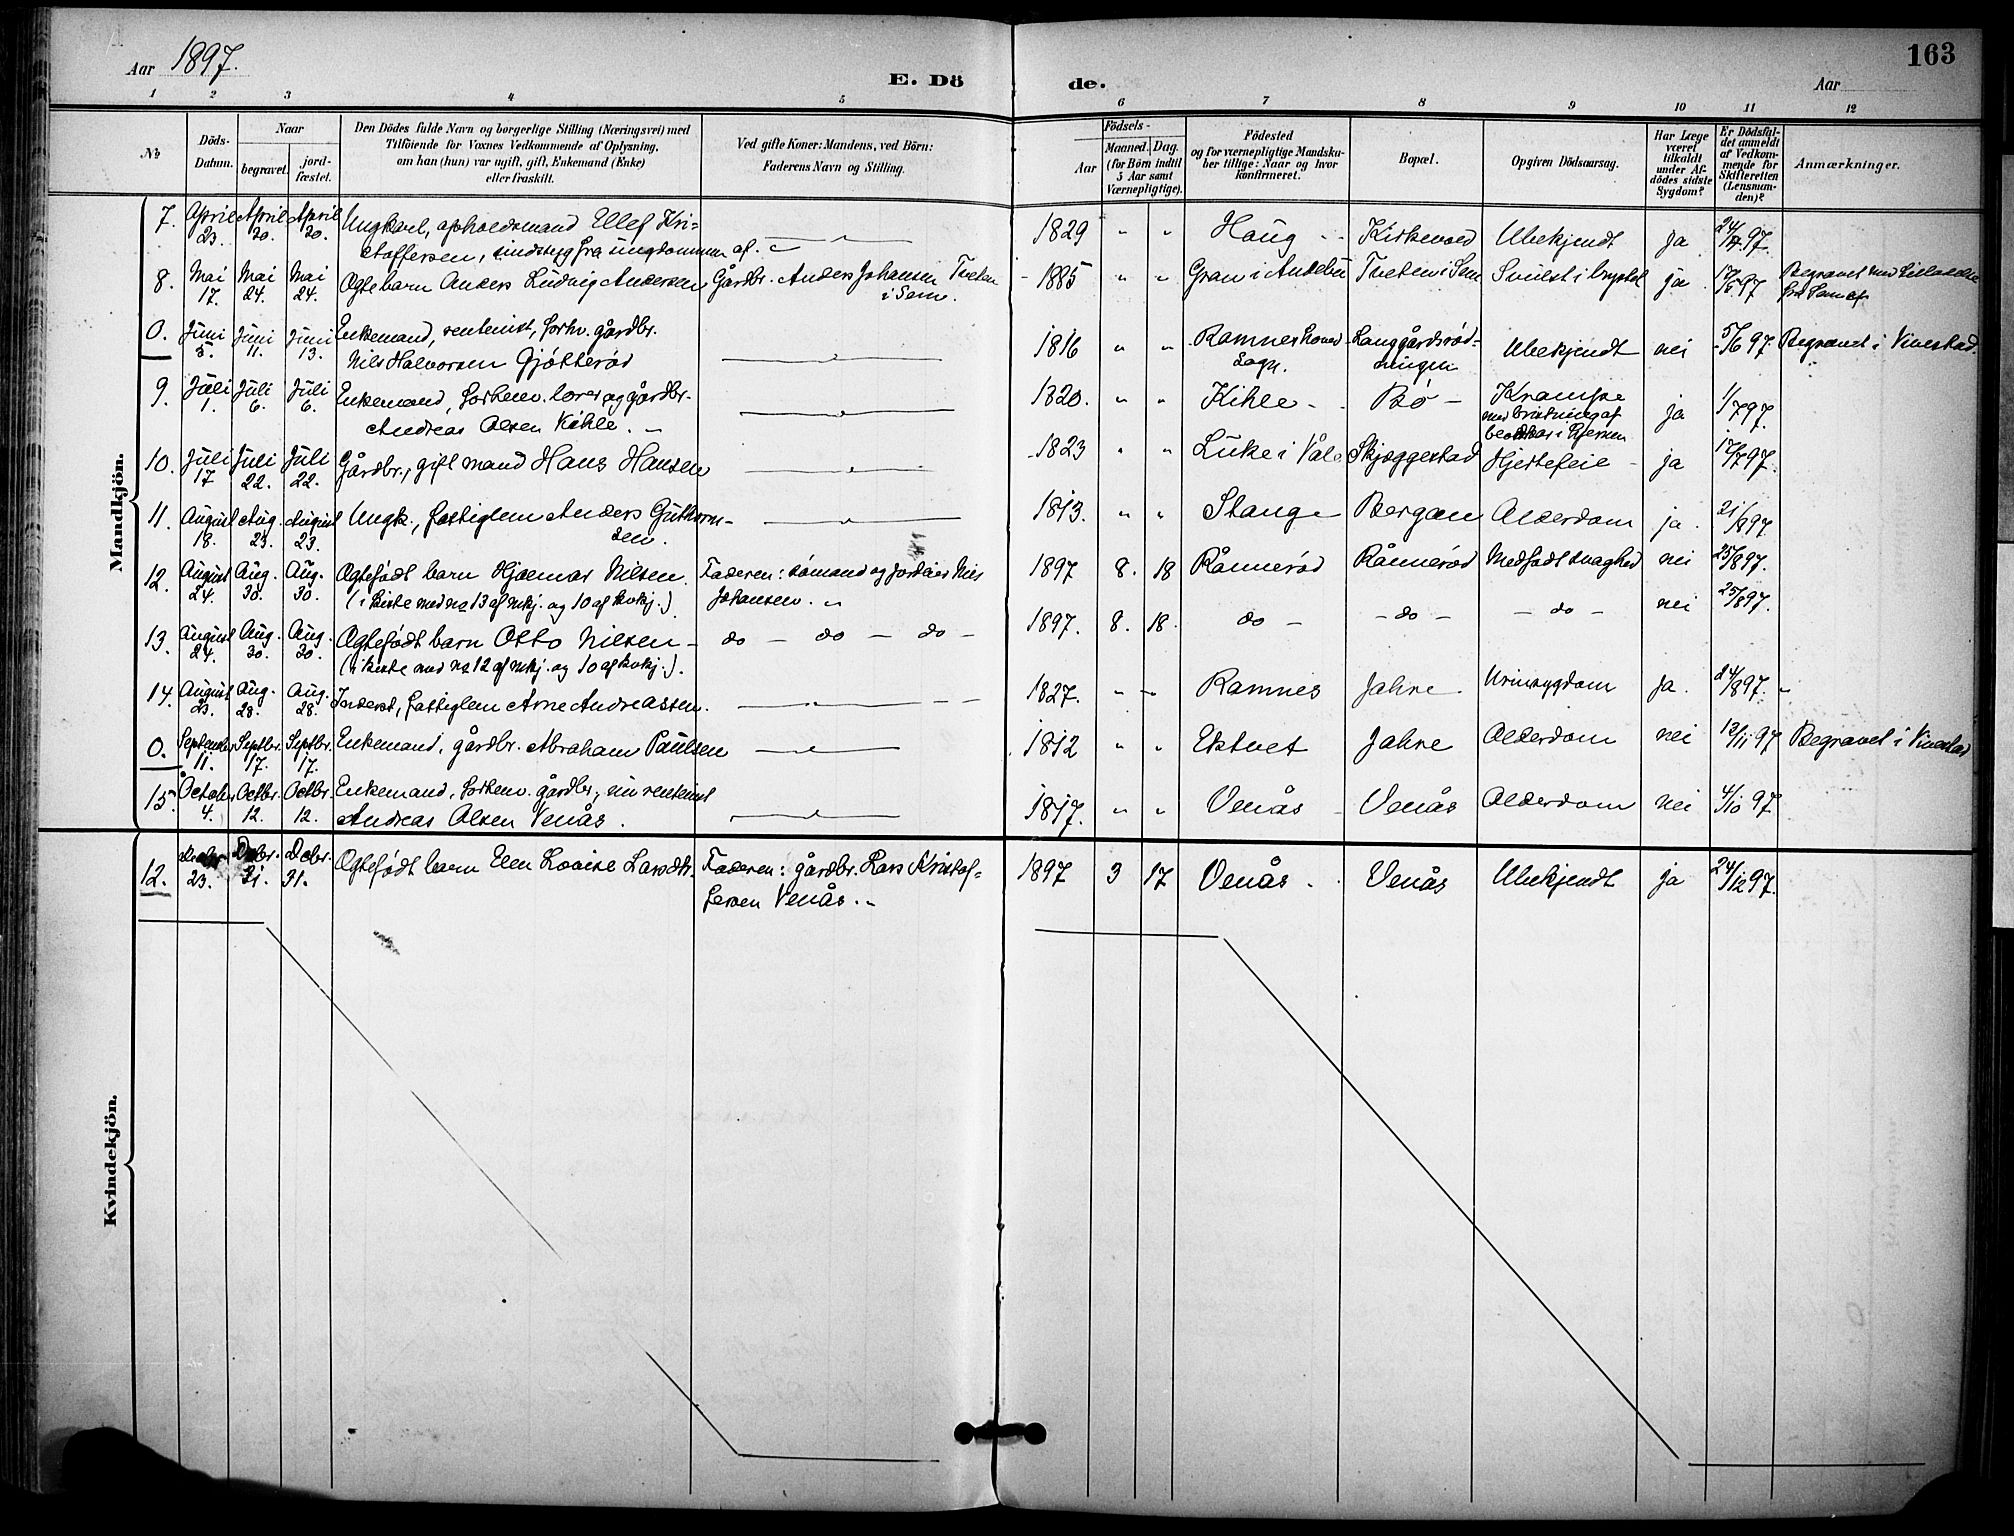 Aar 1897.
E. Dö
de.
Aar
163
1 2 3 4 5 6 7 8 9 10 11 12
No
Döds-
Datum.
Naar
begravet.
jord-
fæstet.
Den Dödes fulde Navn og borgerlige Stilling (Næringsvei) med
Tilföiende for Voxnes Vedkommende af Oplysning,
om han (hun) var ugift, gift, Enkemand (Enke)
eller fraskilt.
Ved gifte Koner: Mandens, ved Börn:
Faderens Navn og Stilling.
Födsels-
Aar
Maaned. Dag.
(for Börn indtil
5 Aar samt
Værnepligtige).
Födested
og for værnepligtige Mandska-
ber tillige: Naar og hvor
konfirmeret.
Bopæl.
Opgiven Dödsaarsag.
Har Læge
været
tilkaldt
under Af-
dödes sidste
Sygdom?
Er Dödsfal-
det anmeldt
af Vedkom-
mende for
Skifteretten
(Lensman-
den)?
Anmærkninger.
Mandkjön.
7. April 23. April 30. April 30. Ungkarl, Ellef Kri-
stoffersen, sindssyg fra ungdommen af. 1829 " " Haug Kirkevold Ubekjendt ja 97.
8. Mai 17. Mai 24. Mai 24. Ogtebarn Anders Ludvig Andersen Gårdbr. Anders Johansen Tveten
i Sem. 1885 " " Gran i Andebu Tveten i Sem Svulst i brystet ja 97 Begravet
fra Sem
0. Juni 5. Juni 11. Juni 13. Enkemand, rentenist, forhv. gårdbr.
Nils Halvorsen Gjötteröd 1816 " " Ramnes hoved
Sogn. Langgårdsröd-
ningen Ubekjendt nei 5/6 97 Begravet i Vivestad.
9. Juli 1. Juli 6. Juli 6. Enkemand, forhenv. lærer og gårdbr.
Andreas Olsen Kihle. 1820. " " Kihle Bö Krampe
med bristning af
blodkar i Hjernen ja 1/7 97.
10. Juli 17 Juli 22. Juli 22. Gårdbr., gift mand Hans Hansen 1823 " " Luke i Våle Skjæggestad Hjertefeil ja 17/7 97.
11. August 18. Aug. 23. August 23. Ungk., fattiglem Anders Guthorm-
sen. 1813. " " Stange Bergan Alderdom ja. 21/8 97.
12. August 24. Aug. 30. Aug. 30. Ogtefödt barn Hjalmar Nilsen. Faderen: sömand og jordeier Nils
(i kiste med no 13 af mkj. og 10 af kvkj.) Johansen. 1897 8. 18 Rånneröd Rånneröd Medfödt svaghed nei 25/8 97.
13. August 24. Aug. 30. Aug. 30. Ogtefödt barn Otto Nilsen do - do - do - 1897. 8. 18. do - - do - - do - nei 25/8 97.
(i kiste med no 12 af mkj. og 10 af kvkj.).
14. August 23. Aug. 28. Aug. 28. fattiglem Arne Andreassen. 1827. " " Ramnes Jahre Urinsygdom ja. 24/8 97.
0. September 11. Septbr. 17. Septbr. 17. Enkemand, gårdbr. Abraham Paulsen 1812 " " Ektvet Jahre Alderdom nei 97 Begravet i Vivestad
15. October 4. Octbr. 12. Octbr. 12. Enkemand, forhenv. gårdbr., nu rentenist
Andreas Olsen Venås. 1817. " " Venås Venås Alderdom nei 4/10 97
Kvindekjön.
12. 23. Debr. 31. Debr. 31. Ogtefödt barn Elen Lovise Larsdtr. Faderen: gårdbr. Lars Kristof-
fersen Venås. 1897 3 17 Venås. Venås Ubekjendt ja 24/12 97.